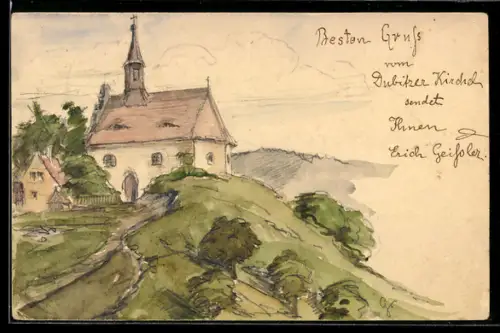 Besten Gruß
vom
Dubitzer Kirchl
sendet
Ihnen
Erich Geißler.